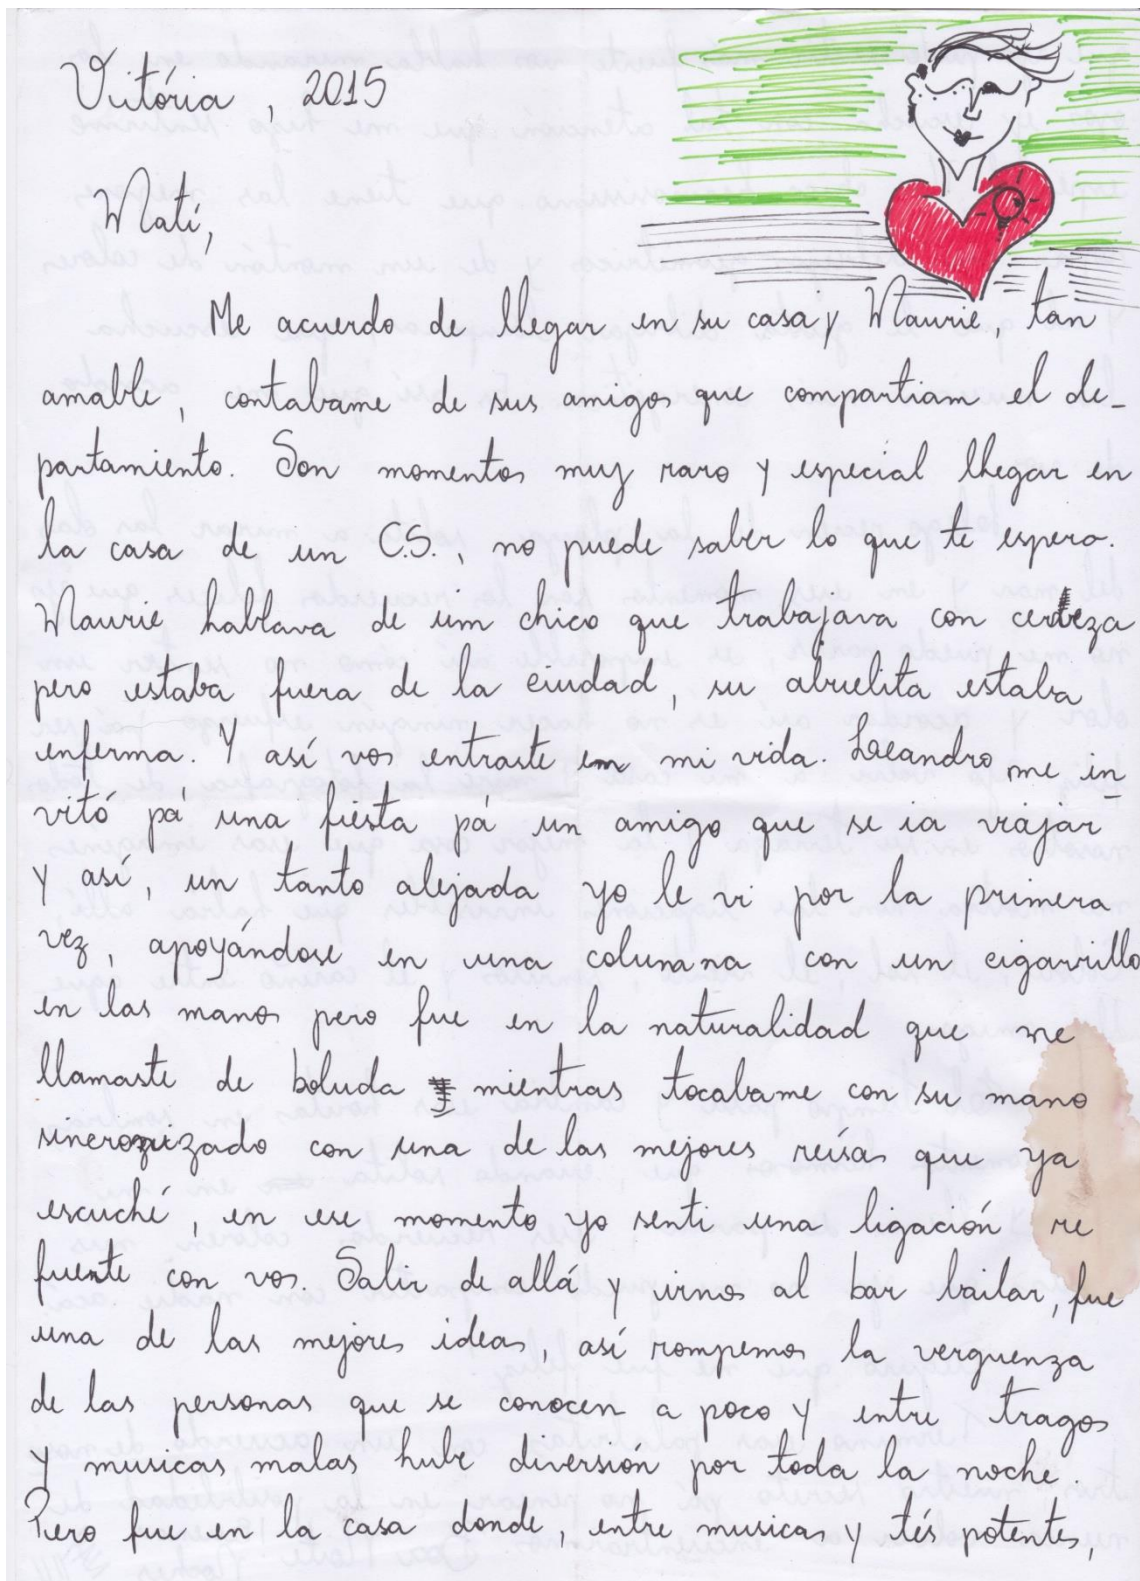 Vitória, 2015
Mati,
Me acuerdo de llegar en su casa y Maurie, tan
amable, contabame de sus amigos que compartiam el de-
partamiento. Son momentos muy raro y especial llegar en
la casa de un C.S., no puede saber lo que te espera.
Maurie hablava de um chico que trabajava con certeza
pero estaba fuera de la ciudad, su abuelita estaba
enferma. Y así vos entraste em mi vida. Leandro me in-
vitó pá una fiesta pá un amigo que se ia viajar
y así, un tanto alejada yo le vi por la primera
vez, apoyándose en una columna con un cigarrillo
en las manos pero fue en la naturalidad que me
llamaste de boluda mientras tocabame con su mano
sincronizado con una de las mejores reisas que ya
escuché, en ese momento yo senti una ligación re
fuente con vos. Salir de allá y irnos al bar bailar, fue
una de las mejores ideas, así rompemos la verguenza
de las personas que se conocen a poco y entre tragos
y musicas malas hube diversión por toda la noche.
Pero fue en la casa donde, entre musicas y tés potentes,